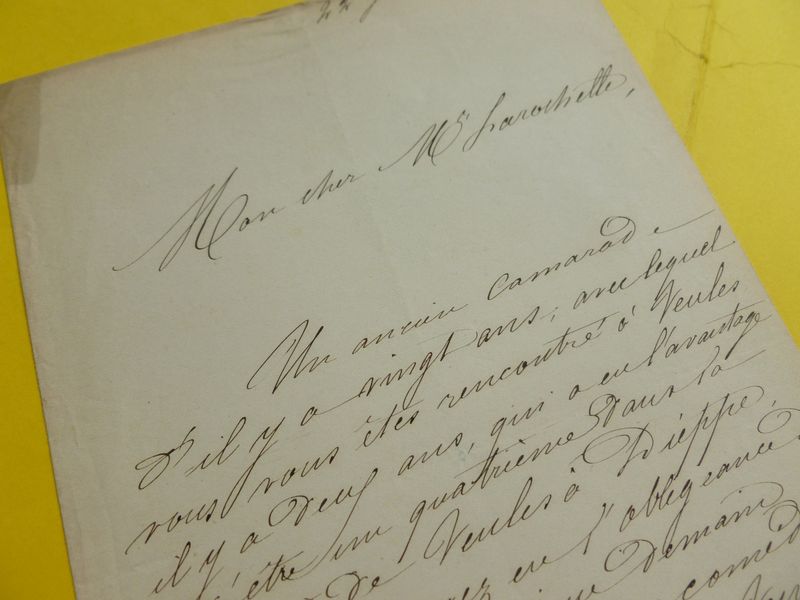 22 
Mon cher Mr Larochelle,
Un ancien camarade
d'il y a vingt ans, avec lequel
vous vous êtes rencontré à Veules
il y a deux ans, qui a eu l'avantage
d'être un quatrième dans la
de Veules à Dieppe,
eu l'obligeance
demain
coméd